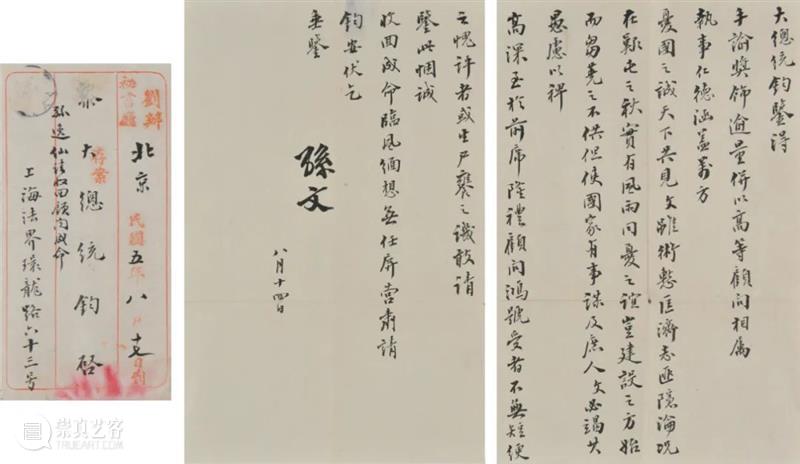 大總統鈞鑒得
手諭獎飾逾量併以高等顧問相屬
執事仁德涵蓋萬方
憂國之誠天下共見文雖術慙匡濟志匪隱淪況
在艱屯之秋實有風雨同憂之誼豈建設之方始
而芻蕘之不供但使國家有事諏及庶人文必竭其
愚慮以裨
高深至於前席隆禮顧問鴻號受者不無短綆
之愧許者或生尸饔之譏敢請
鑒此悃誠
收回成命臨風緬想無任屏營肅請
鈞安伏乞
垂鑒
孫文
八月十四日
劉辦
秘書廳
存案
民國五年八月十七日到
北京
黎大總統鈞啓
孫逸仙請收回顧問成命
上海法界環龍路六十三号
崇真艺客
TRUEART.COM